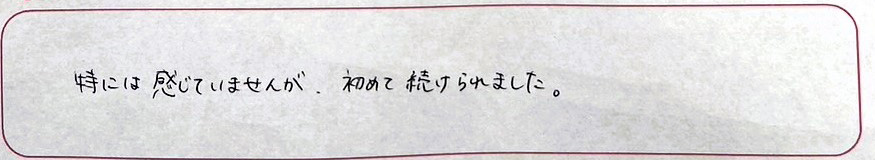 特には感じていませんが、初めて続けられました。